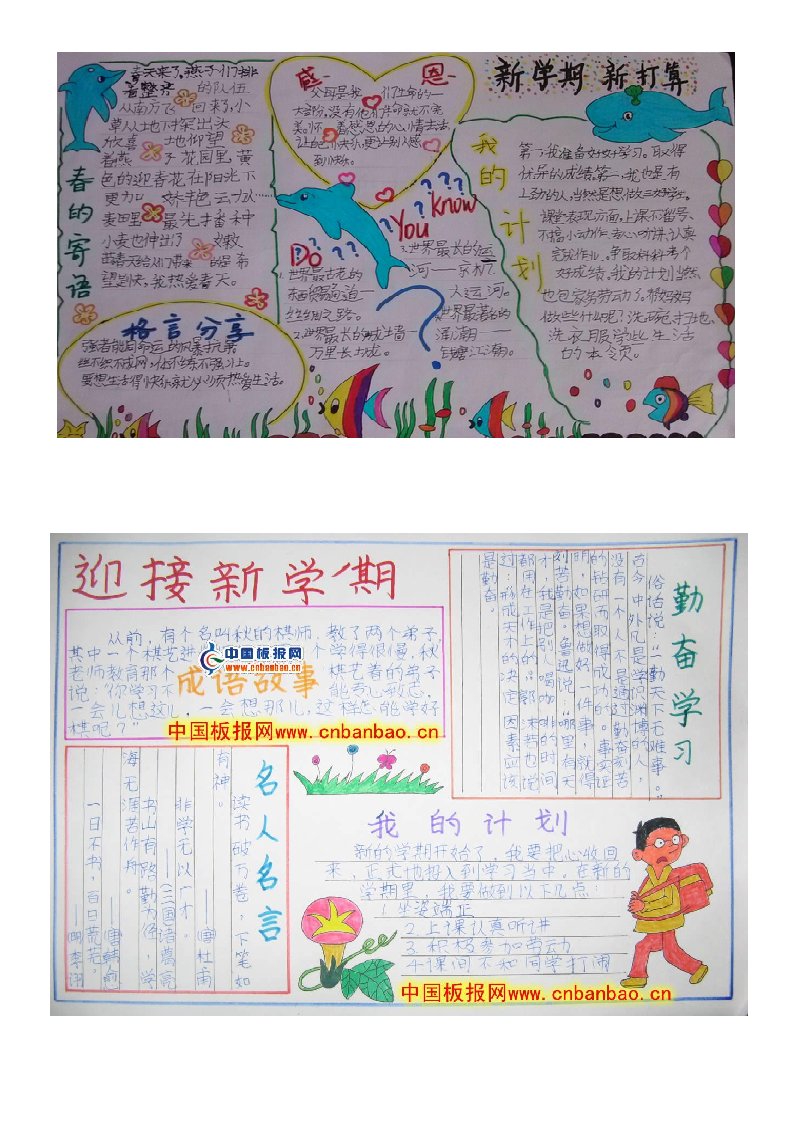 新学期 新打算
春的寄语
春天来了,燕子们排
着整齐的队伍
从南方飞回来了,小
草从土地下探出头
欣喜地仰望
着燕子花园里,黄
色的迎春花在阳光下
更加娇艳
麦田里最先播种
小麦也伸出了嫩教
望愉快,我热爱春天。
感恩
父母是我们生命的一
大部份,没有他们生命就不完
美。怀着感恩的心情去
到愉快。
Do You Know
1.世界最古老的
丝绸之路。
2.世界最长的城墙—
万里长城。
3.世界最长的运
河—京杭
大运河。
世界最著名的
涌潮—
钱塘江潮。
格言分享
丝不织不成网,
要想生活得愉快你就必须热爱生活。
我的计划
第一,我准备好好学习。取得
优异的成绩。
课堂表现方面,上课不留号、
不搞小动作,
完成作业。争取科科考个
好成绩。我的计划当然
也包家务劳动了。帮妈妈
做些什么呢?洗碗、扫地、
洗衣服学些生活
的本领。
迎接新学期
从前,有个名叫秋的棋师,教了两个弟子,
其中一个棋艺进
个学得很慢,秋
老师教育那个
棋艺着的弟子
说:“你学习不
能专心致志,
一会儿想这儿,一会想那儿,这样怎能学好
棋呢?”
成语故事
中国板报网
www.cnbanbao.cn
中国板报网www.cnbanbao.cn
勤奋学习
俗话说:“勤天下无难事。”
古今中外凡是学识渊博的人,
没有一个人不是通过勤奋刻苦
的钻研而取得成功的。事实证
明,如果想做好一件事,就得
刻苦勤奋。鲁迅说:“哪里有天
才,我是把别人喝咖啡的时间
都用在工作上的。”
过:形成天才的决定因素应该
是勤奋。
名人名言
读书破万卷,下笔如
有神。
——(唐)杜甫
非学无以广才。
——(三国)诸葛亮
书山有路勤为径,学
海无涯苦作舟。
——(唐)韩愈
一日不书,百日荒芜。
——(明)李诩
我的计划
新的学期开始了,我要把心收回
来,正式地投入到学习当中。在新的
学期里,我要做到以下几点:
1.坐姿端正
2.上课认真听讲
3.积极参加劳动
4.课间不和同学打闹
中国板报网www.cnbanbao.cn